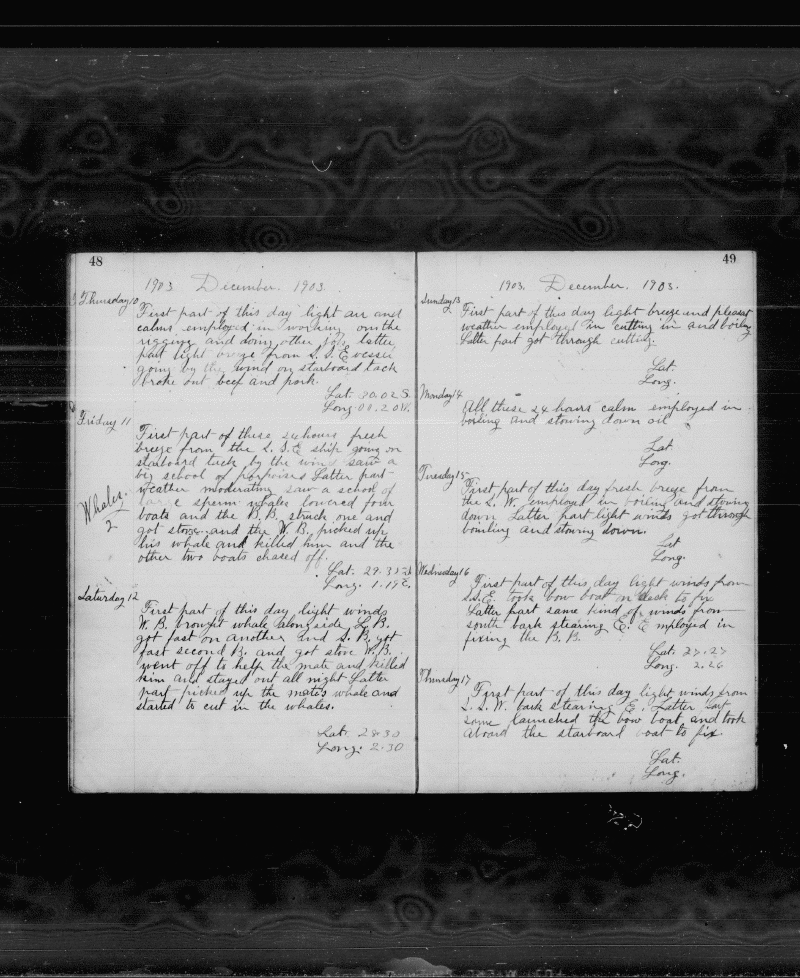 48
1903 December. 1903.
Thursday 10
First part of this day light air and
calms employed in working on the
rigging and doing other jobs latter
part light breeze from S.S.E vessel
going by the wind on starboard tack
broke out beef and pork.
Lat. 30.02 S.
Long.
Friday 11
First part of these 24 hours fresh
breeze from the S.S.E ship going on
starboard tack by the wind saw a
big school of porpoises Latter part
weather moderating saw a school of
sperm whales lowered four
boats and the B.B. struck one and
got stove and the W.B. picked up
his whale and killed him and the
other two boats chased off.
Whales.
2
Lat. 29.35
Long. 1.19 E.
Saturday 12
First part of this day light winds
W.B. brought whale alongside L.B.
got fast on another and S.B. got
fast second B. and got stove W.B.
went off to help the mate and killed
him and stayed out all night Latter
part picked up the mates whale and
started to cut in the whales.
Lat. 28.30
Long. 2.30
49
1903. December. 1903.
Sunday 13
First part of this day light breeze and pleasat
weather employed in cutting in and boiling
Latter part got through cutting.
Lat.
Long.
Monday 14
All these 24 hours calm employed in
boiling and stowing down oil
Lat
Long.
Tuesday 15
First part of this day fresh breeze from
the S.W. employed in boiling and stowing
down Latter part light winds got through
boiling and stowing down.
Lat
Long.
Wednesday 16
First part of this day light winds from
S.S.E. took bow boat on deck to fix
Latter part same kind of winds from
south bark stearing E. Employed in
fixing the B.B.
Lat. 27.27
Long. 2.26
Thursday 17
First part of this day light winds from
S.S.W. bark stearing E. Latter part
same launched the bow boat and took
aboard the starboard boat to fix.
Lat.
Long.